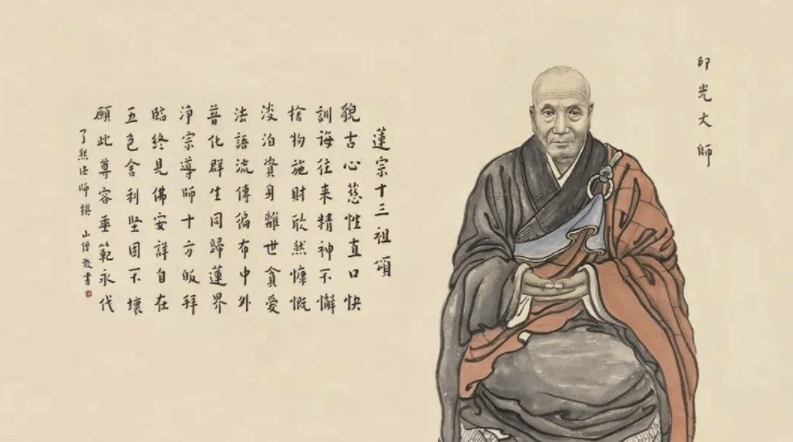 印光大師
蓮宗十三祖頌
貌古心慈性直口快
訓誨往來精神不懈
捨物施財欣然慷慨
淡泊資身離世貪愛
法語流傳徧布中外
普化群生同歸蓮界
淨宗導師十方皈拜
臨終見佛安詳自在
五色舍利堅固不壞
願此尊容垂範永代
了然法師撰 山僧敬書